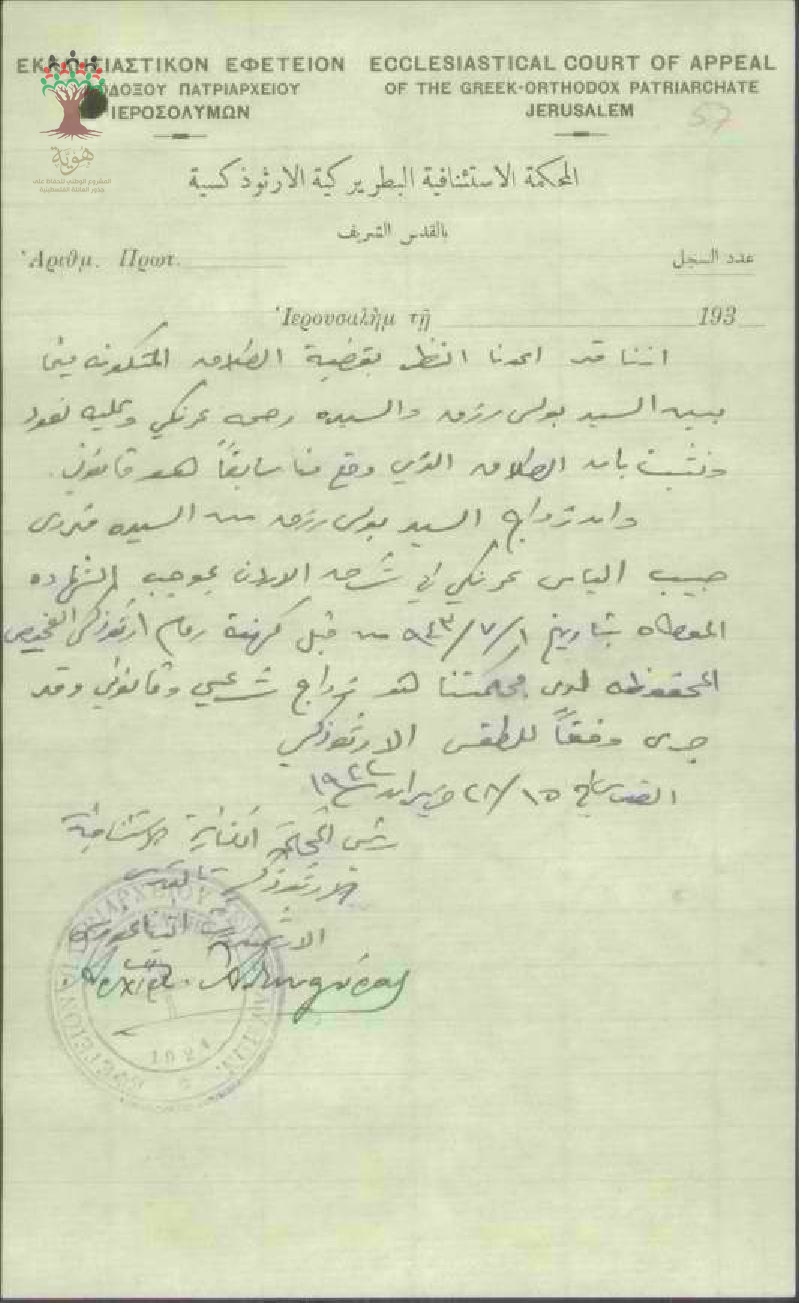 ΕΚΚΛΗΣΙΑΣΤΙΚΟΝ ΕΦΕΤΕΙΟΝ
ΠΑΤΡΙΑΡΧΕΙΟΥ
ΙΕΡΟΣΟΛΥΜΩΝ
ECCLESIASTICAL COURT OF APPEAL
OF THE GREEK-ORTHODOX PATRIARCHATE
JERUSALEM
57
هوية
المشروع الوطني للحفاظ على
جذور العائلة الفلسطينية
المحكمة الاستئنافية البطريركية الارثوذكسية
بالقدس الشريف
Ἀριθμ. Πρωτ.
عدد السجل
Ἱερουσαλὴμ τῇ 193
اننا قد اعدنا النظر بقضية الطلاق المتكونه فيما
بين السيد بولس رزق والسيده رحمه عرنكي وعليه نعود
ونثبت بان الطلاق الذي وقع منا سابقاً هو قانوني.
وان زواج السيد بولس رزق من السيده فيروى
حبيب الياس عرنكي في شرق الاردن بموجب الشهاده
المعطاه بتاريخ ١/٧/٩٤٣ من قبل كهنة روم ارثوذكس الفحيص
المحفوظه لدى محكمتنا هو زواج شرعي وقانوني وقد
جرى وفقاً للطقس الارثوذكسي
القدس في ٢٨/١٥ حزيران
رئيس المحكمة الاستئنافية
الارثوذكسية بالقدس
1921